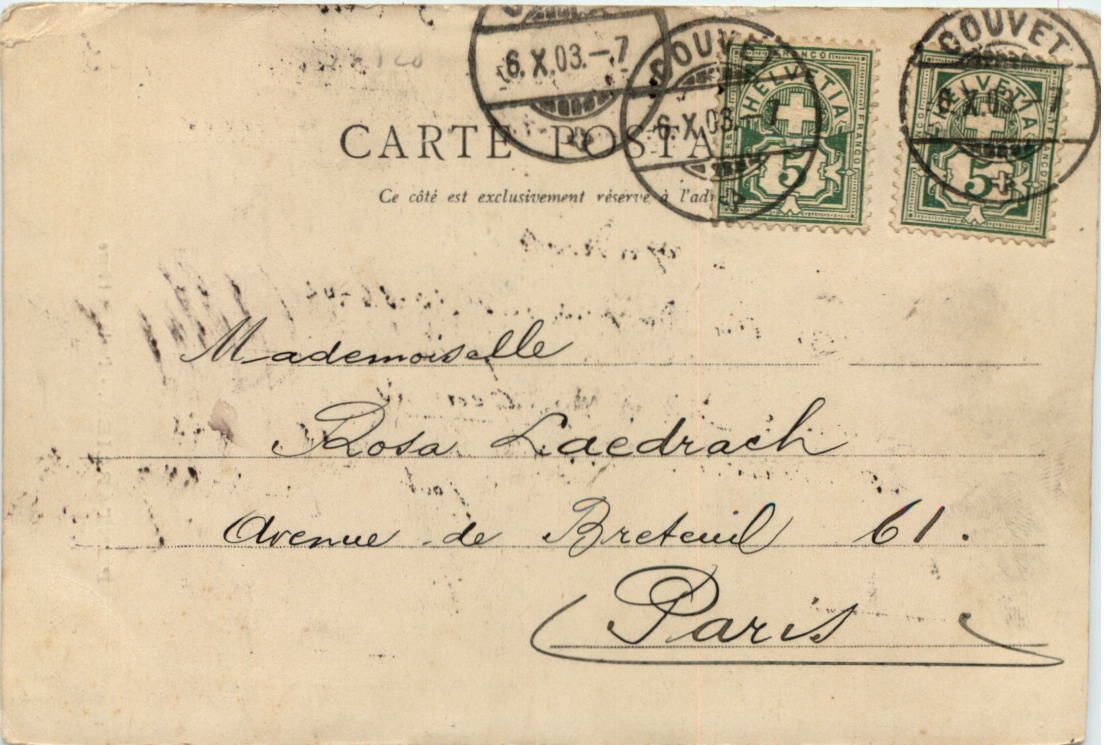 6.X.03.-7
COUVET
6.X.03.
COUVET
X.03
FRANCO
HELVETIA
FRANCO
5
HELVETIA
5
CARTE POSTA
Ce côté est exclusivement réservé à l'adr
Mademoiselle
Rosa Laedrach
Avenue de Breteuil 61.
Paris